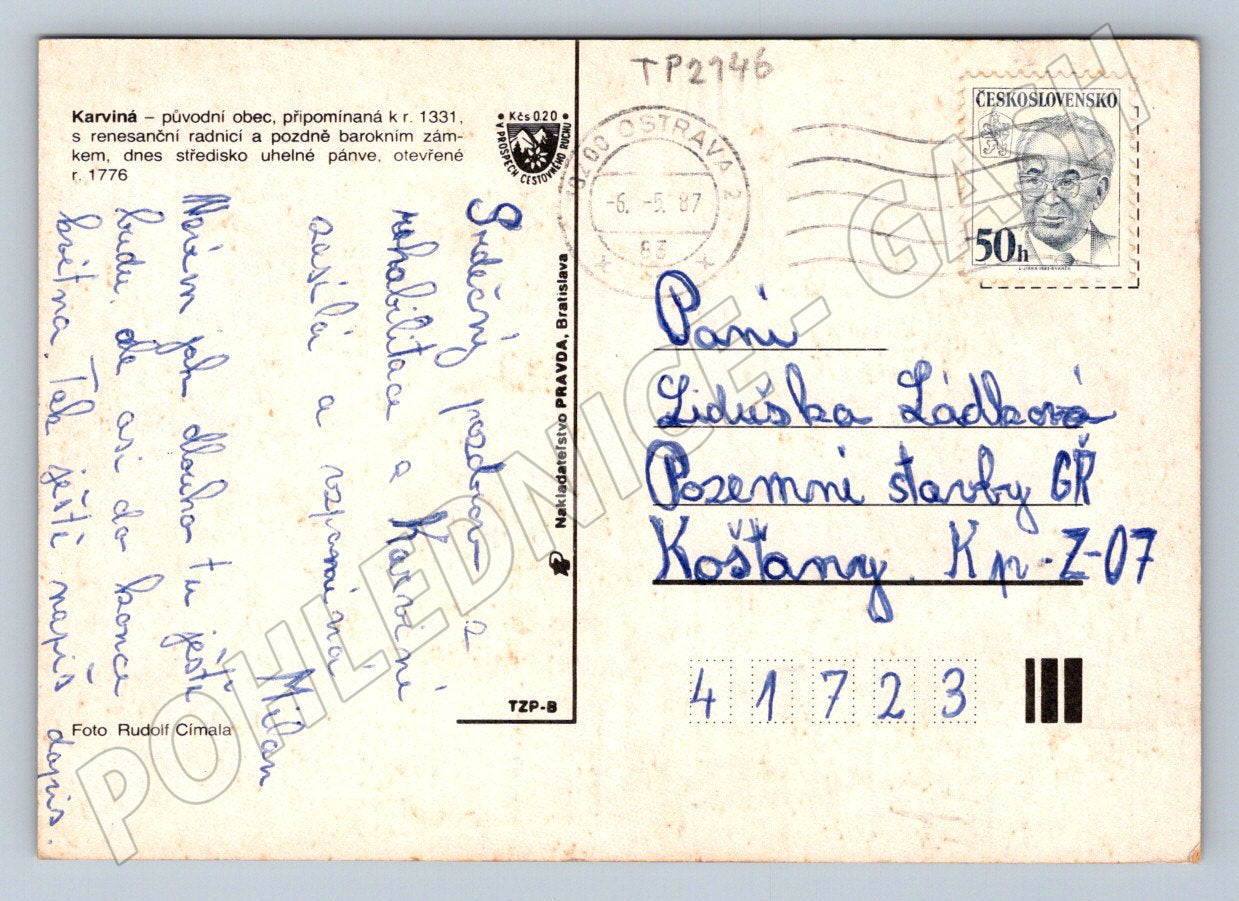 TP2146
Karviná – původní obec, připomínaná k r. 1331,
s renesanční radnicí a pozdně barokním zám-
kem, dnes středisko uhelné pánve, otevřené
r. 1776
Kčs 0.20
V PROSPĚCH CESTOVNÉHO RUCHU
OSTRAVA 2
-6. -5. 87
ČESKOSLOVENSKO
50h
Srdečný pozdrav z
rehabilitace a Karviné
zasílá a vzpomíná
Milan
Nevím jak dlouho tu ještě
budu, ale asi do konce
května. Tak ještě napiš dopis.
Nakladateľstvo PRAVDA, Bratislava
TZP-B
Foto Rudolf Címala
Paní
Liduška Ládková
Pozemní stavby GŘ
Košťany. Kp-Z-07
41723
POHLEDNICE - GASH